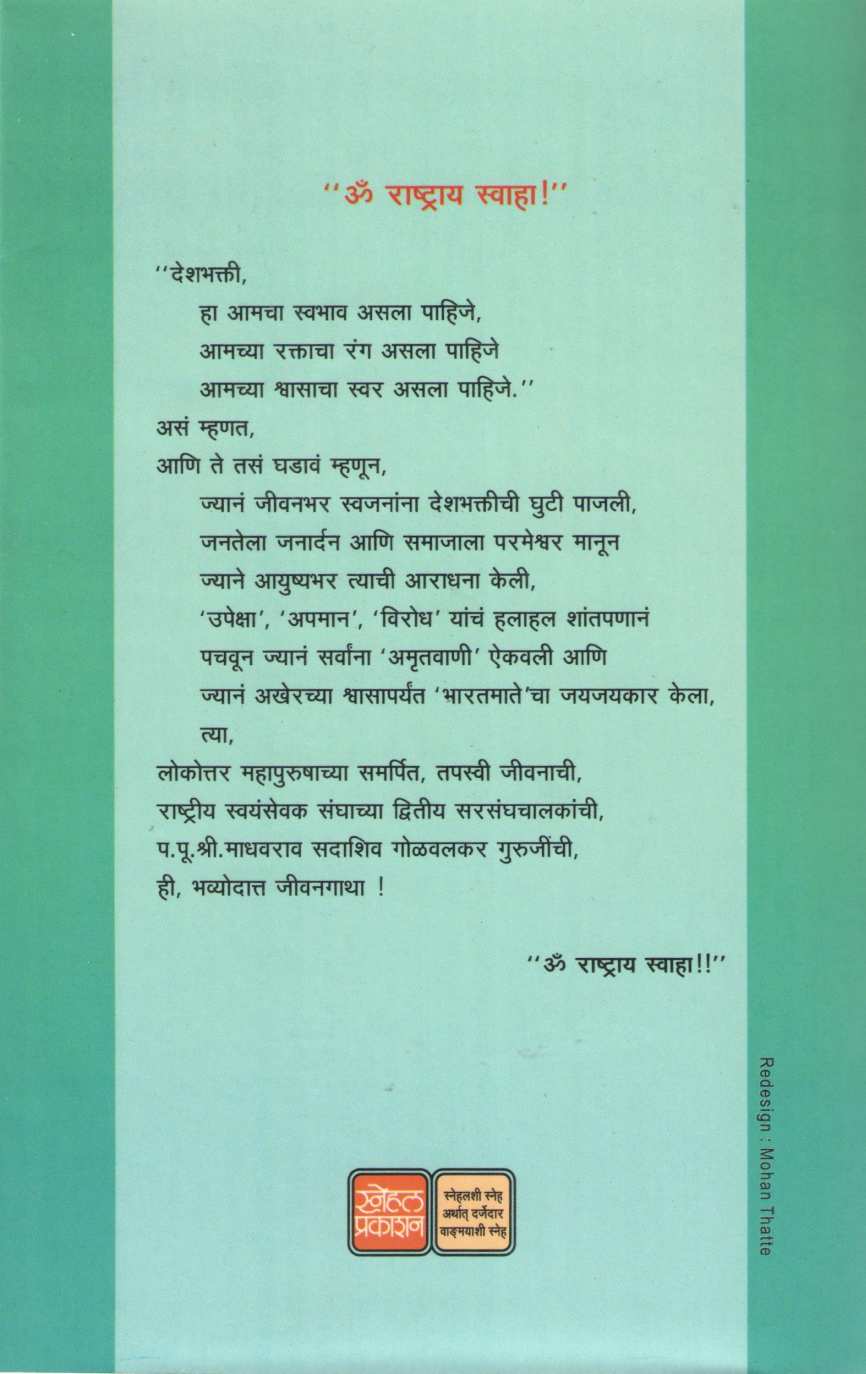 ‘‘ॐ राष्ट्राय स्वाहा!’’
‘‘देशभक्ती,
हा आमचा स्वभाव असला पाहिजे,
आमच्या रक्ताचा रंग असला पाहिजे
आमच्या श्वासाचा स्वर असला पाहिजे.’’
असं म्हणत,
आणि ते तसं घडावं म्हणून,
ज्यानं जीवनभर स्वजनांना देशभक्तीची घुटी पाजली,
जनतेला जनार्दन आणि समाजाला परमेश्वर मानून
ज्याने आयुष्यभर त्याची आराधना केली,
‘उपेक्षा’, ‘अपमान’, ‘विरोध’ यांचं हलाहल शांतपणानं
पचवून ज्यानं सर्वांना ‘अमृतवाणी’ ऐकवली आणि
ज्यानं अखेरच्या श्वासापर्यंत ‘भारतमाते’चा जयजयकार केला,
त्या,
लोकोत्तर महापुरुषाच्या समर्पित, तपस्वी जीवनाची,
राष्ट्रीय स्वयंसेवक संघाच्या द्वितीय सरसंघचालकांची,
प.पू.श्री.माधवराव सदाशिव गोळवलकर गुरुजींची,
ही, भव्योदात्त जीवनगाथा !
‘‘ॐ राष्ट्राय स्वाहा!!’’
Redesign : Mohan Thatte
स्नेहल
प्रकाशन
स्नेहलशी स्नेह
अर्थात् दर्जेदार
वाङ्मयाशी स्नेह